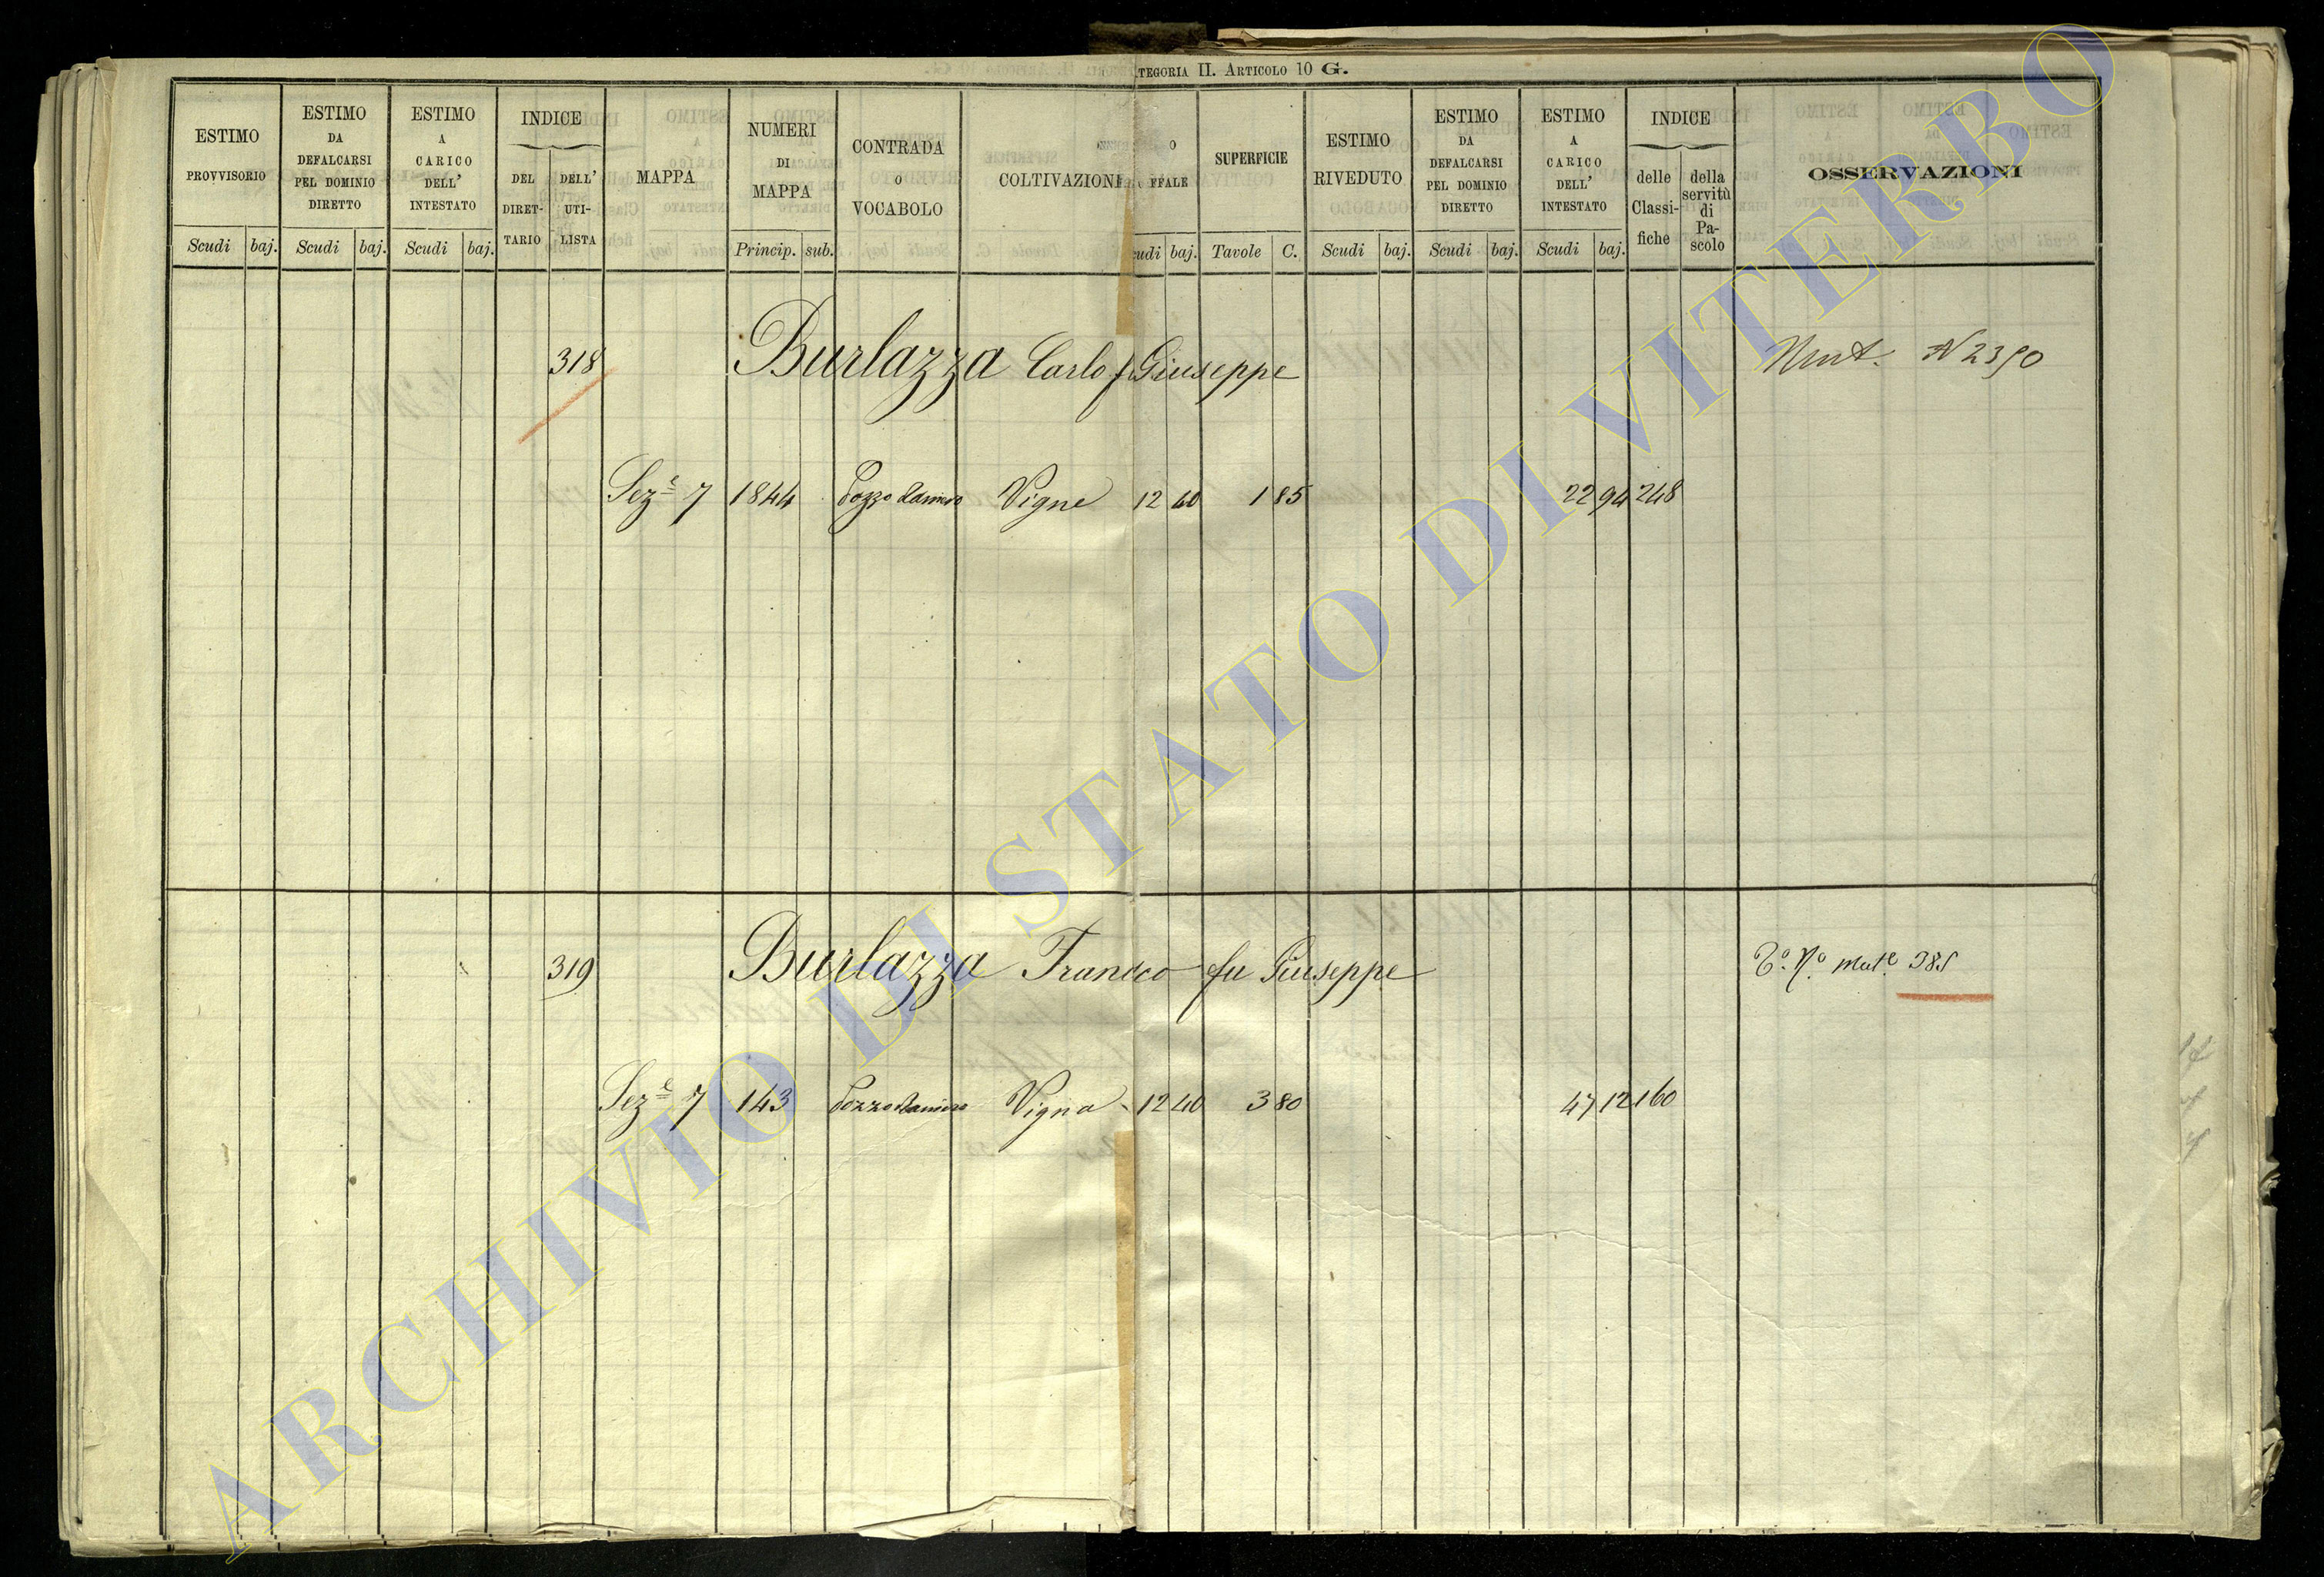 TEGORIA II. ARTICOLO 10 G.
ESTIMO PROVVISORIO
Scudi baj.
ESTIMO DA DEFALCARSI PEL DOMINIO DIRETTO
Scudi baj.
ESTIMO A CARICO DELL' INTESTATO
Scudi baj.
INDICE
DEL DIRET-TARIO
DELL' UTI-LISTA
MAPPA
NUMERI DI MAPPA
Princip. sub.
CONTRADA O VOCABOLO
COLTIVAZIONI
O
FFALE
udi baj.
SUPERFICIE
Tavole C.
ESTIMO RIVEDUTO
Scudi baj.
ESTIMO DA DEFALCARSI PEL DOMINIO DIRETTO
Scudi baj.
ESTIMO A CARICO DELL' INTESTATO
Scudi baj.
INDICE
delle Classi-fiche
della servitù di Pa-scolo
OSSERVAZIONI
318 Burlazza Carlo f. Giuseppe Mut. N 2390
Seze 7 1844 Pozzo Ramiro Vigne 12 40 1 85 22 94 248
319 Burlazza Franco fu Giuseppe To. No. mute 385
Seze 7 143 Pozzo Ramiro Vigna 12 40 3 80 47 12 160
ARCHIVIO DI STATO DI VITERBO